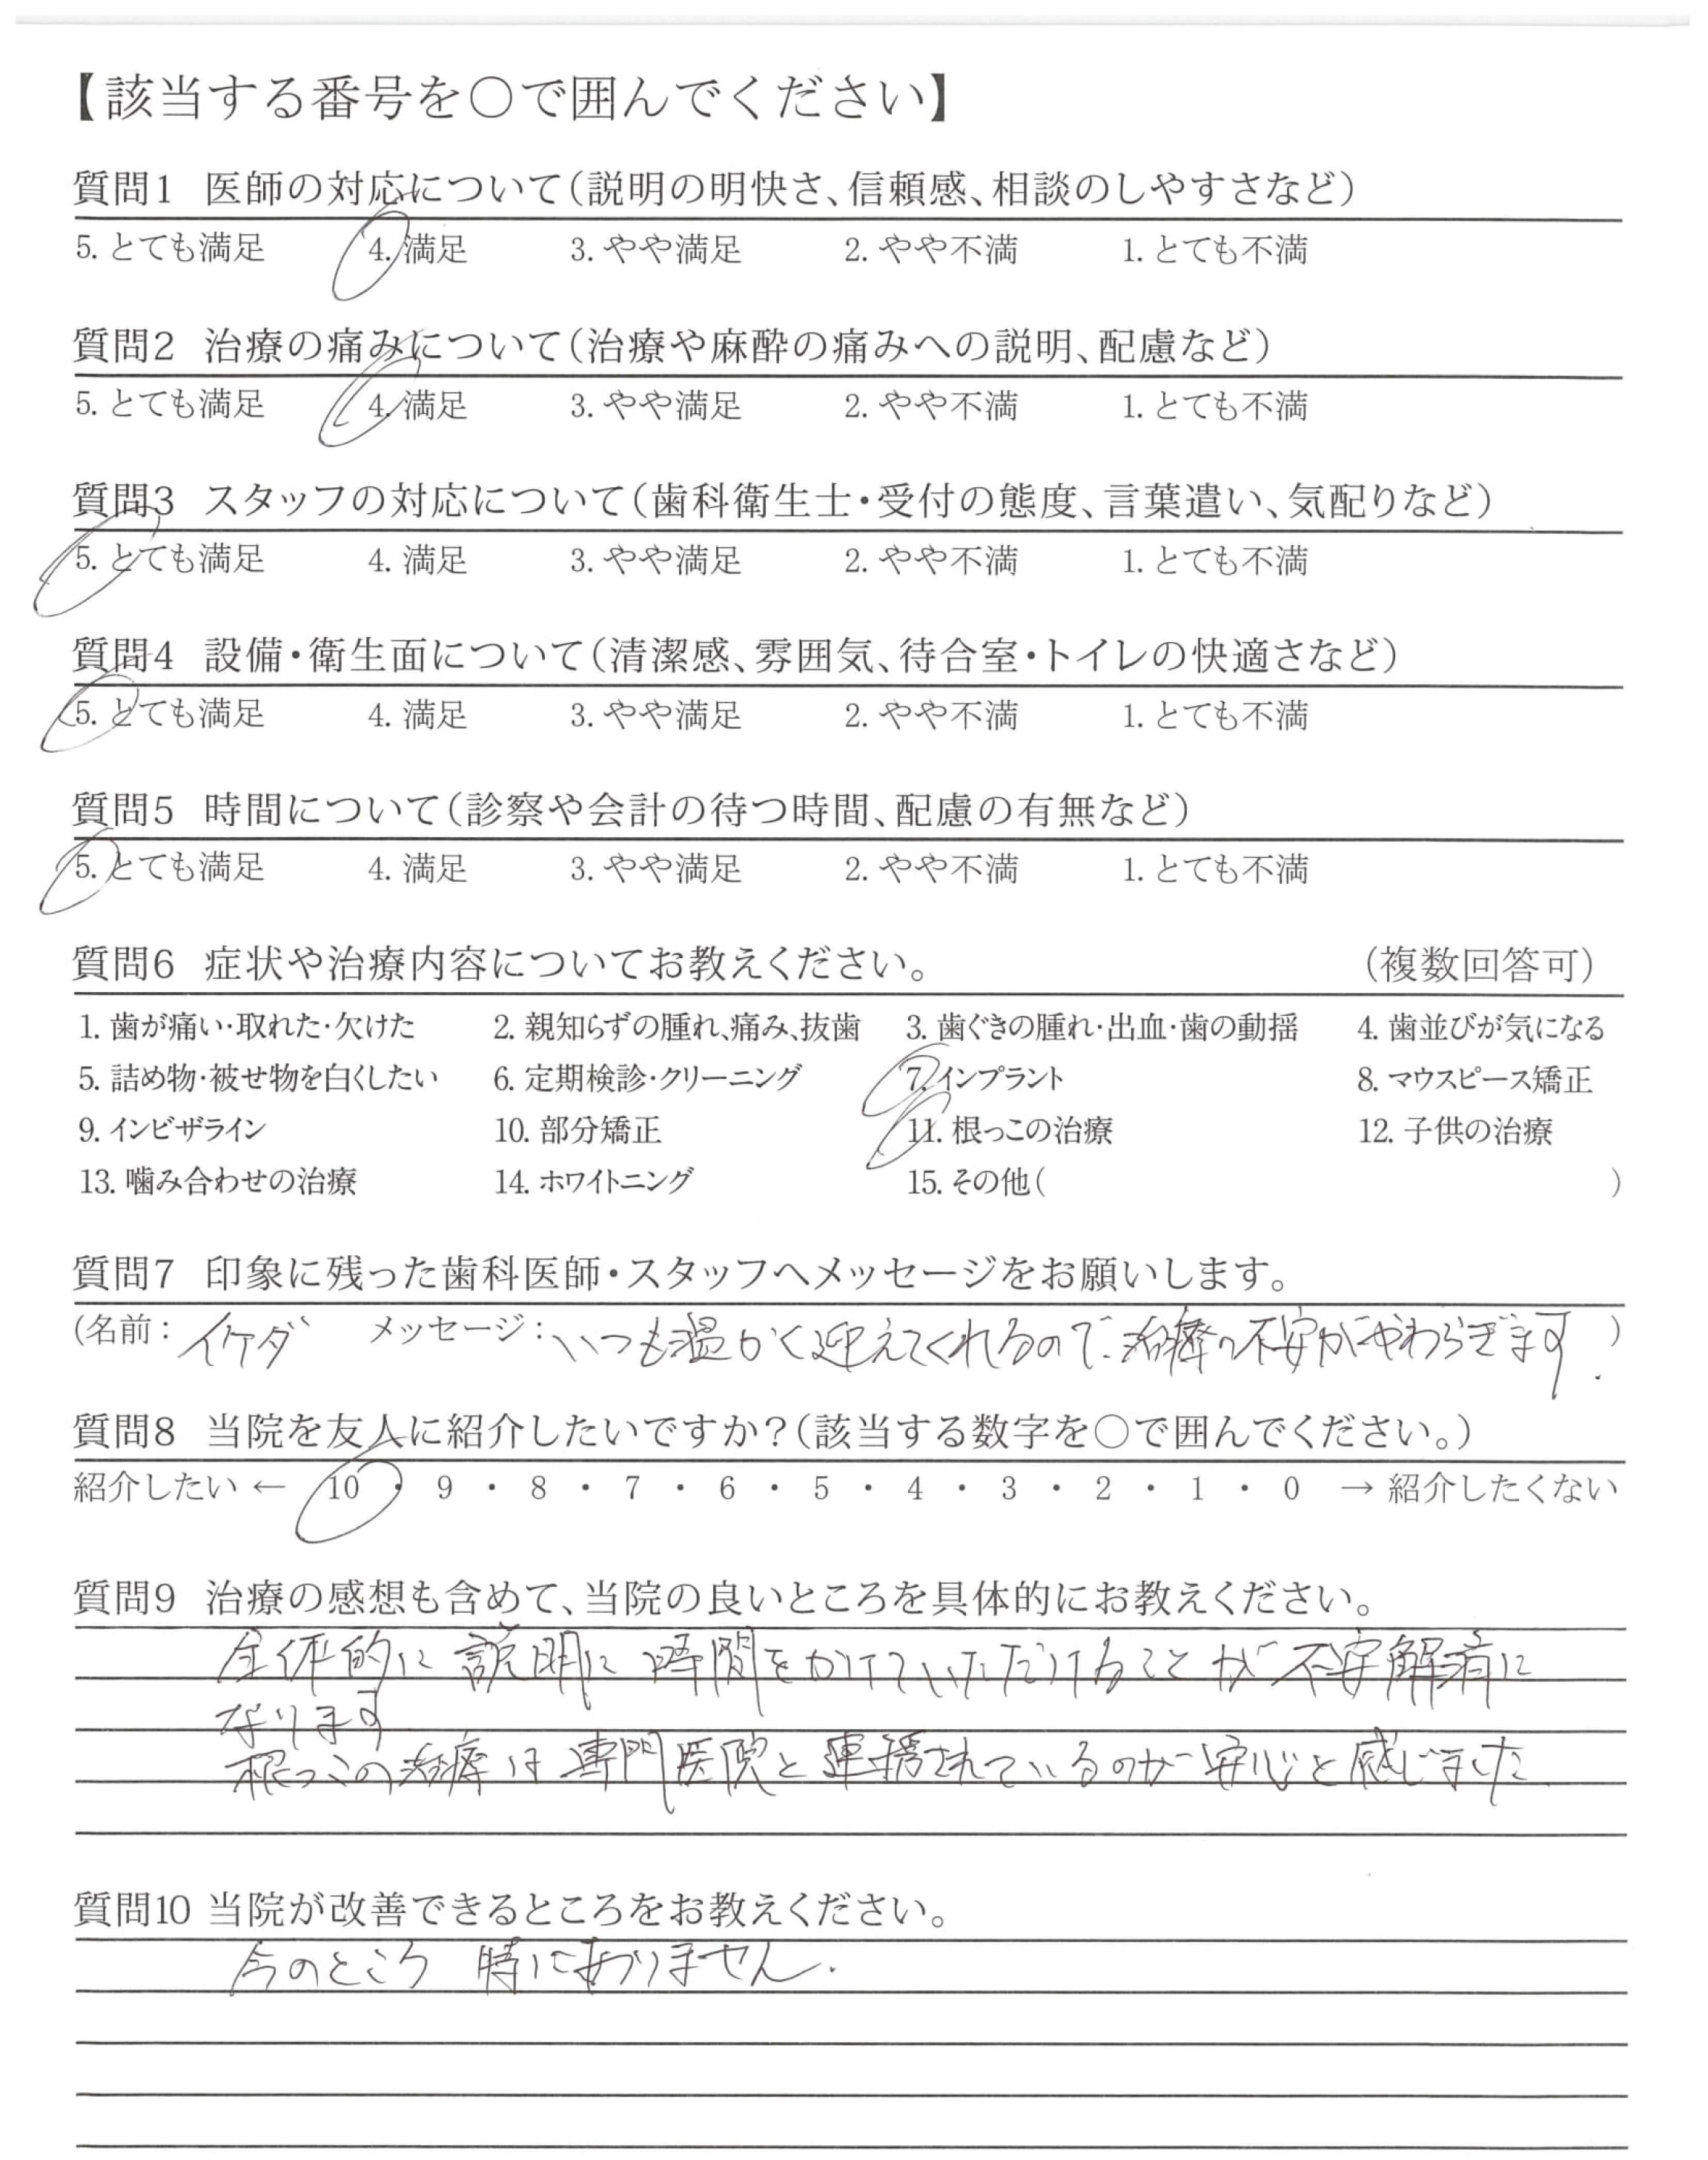 【該当する番号を〇で囲んでください】
質問1 医師の対応について(説明の明快さ、信頼感、相談のしやすさなど)
5. とても満足 4. 満足 3. やや満足 2. やや不満 1. とても不満
質問2 治療の痛みについて(治療や麻酔の痛みへの説明、配慮など)
5. とても満足 4. 満足 3. やや満足 2. やや不満 1. とても不満
質問3 スタッフの対応について(歯科衛生士・受付の態度、言葉遣い、気配りなど)
5. とても満足 4. 満足 3. やや満足 2. やや不満 1. とても不満
質問4 設備・衛生面について(清潔感、雰囲気、待合室・トイレの快適さなど)
5. とても満足 4. 満足 3. やや満足 2. やや不満 1. とても不満
質問5 時間について(診察や会計の待つ時間、配慮の有無など)
5. とても満足 4. 満足 3. やや満足 2. やや不満 1. とても不満
質問6 症状や治療内容についてお教えください。 (複数回答可)
1. 歯が痛い・取れた・欠けた 2. 親知らずの腫れ、痛み、抜歯 3. 歯ぐきの腫れ・出血・歯の動揺 4. 歯並びが気になる
5. 詰め物・被せ物を白くしたい 6. 定期検診・クリーニング 7. インプラント 8. マウスピース矯正
9. インビザライン 10. 部分矯正 11. 根っこの治療 12. 子供の治療
13. 噛み合わせの治療 14. ホワイトニング 15. その他( )
質問7 印象に残った歯科医師・スタッフへメッセージをお願いします。
(名前: イケダ メッセージ: いつも温かく迎えてくれるので治療の不安がやわらぎます. )
質問8 当院を友人に紹介したいですか?(該当する数字を〇で囲んでください。)
紹介したい ← 10 ・ 9 ・ 8 ・ 7 ・ 6 ・ 5 ・ 4 ・ 3 ・ 2 ・ 1 ・ 0 → 紹介したくない
質問9 治療の感想も含めて、当院の良いところを具体的にお教えください。
全体的に説明に時間をかけていただけることが不安解消に
なります
根っこの治療は専門医院と連携されているのが安心と感じました
質問10 当院が改善できるところをお教えください。
今のところ 特にありません.